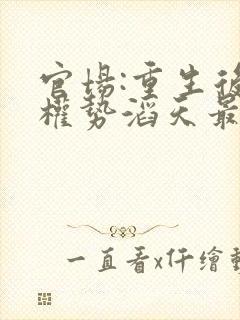 官場:重生後
權勢滔天最
一直看x仟繪動